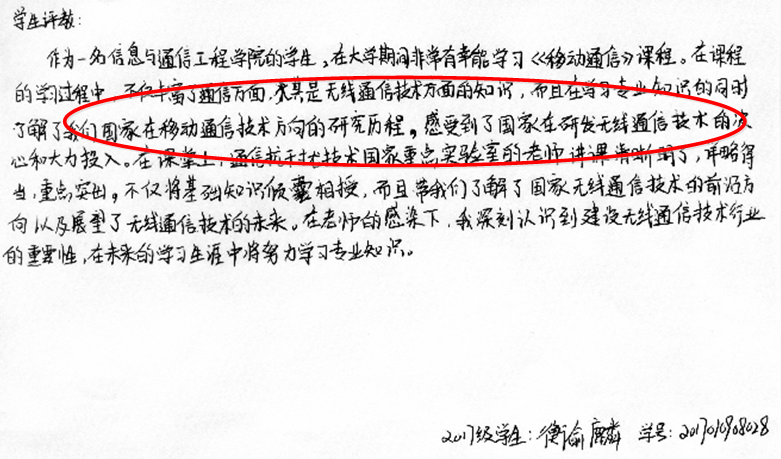 学生评教:
作为一名信息与通信工程学院的学生,在大学期间非常有幸能学习《移动通信》课程。在课程
的学习过程中,不仅丰富了通信方面,尤其是无线通信技术方面的知识,而且在学习专业知识的同时
了解了我们国家在移动通信技术方向的研究历程,感受到了国家在研发无线通信技术的决
心和大力投入。在课堂上,通信抗干扰技术国家重点实验室的老师讲课清晰明了,详略得
当,重点突出,不仅将基础知识倾囊相授,而且带我们了解了国家无线通信技术的前沿方
向以及展望了无线通信技术的未来。在老师的感染下,我深刻认识到建设无线通信技术行业
的重要性,在未来的学习生涯中将努力学习专业知识。
2017级学生:衡渝麟 学号:2017010908028